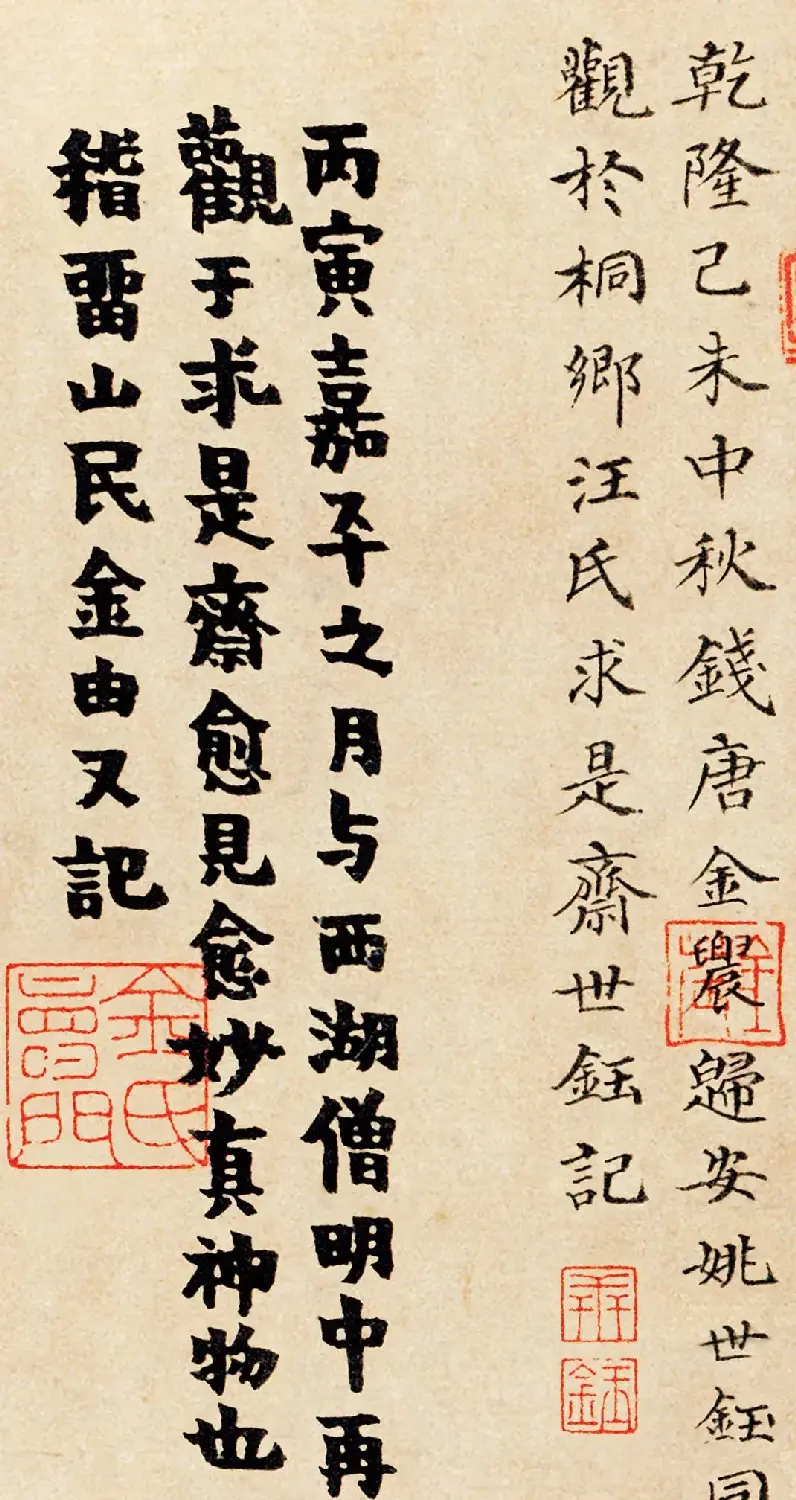 乾隆己未中秋錢唐金農歸安姚世鈺同
觀於桐鄉汪氏求是齋世鈺記
丙寅嘉平之月与西湖僧明中再
觀于求是齋愈見愈妙真神物也
稽畱山民金由又記
世鈺
金氏壽門